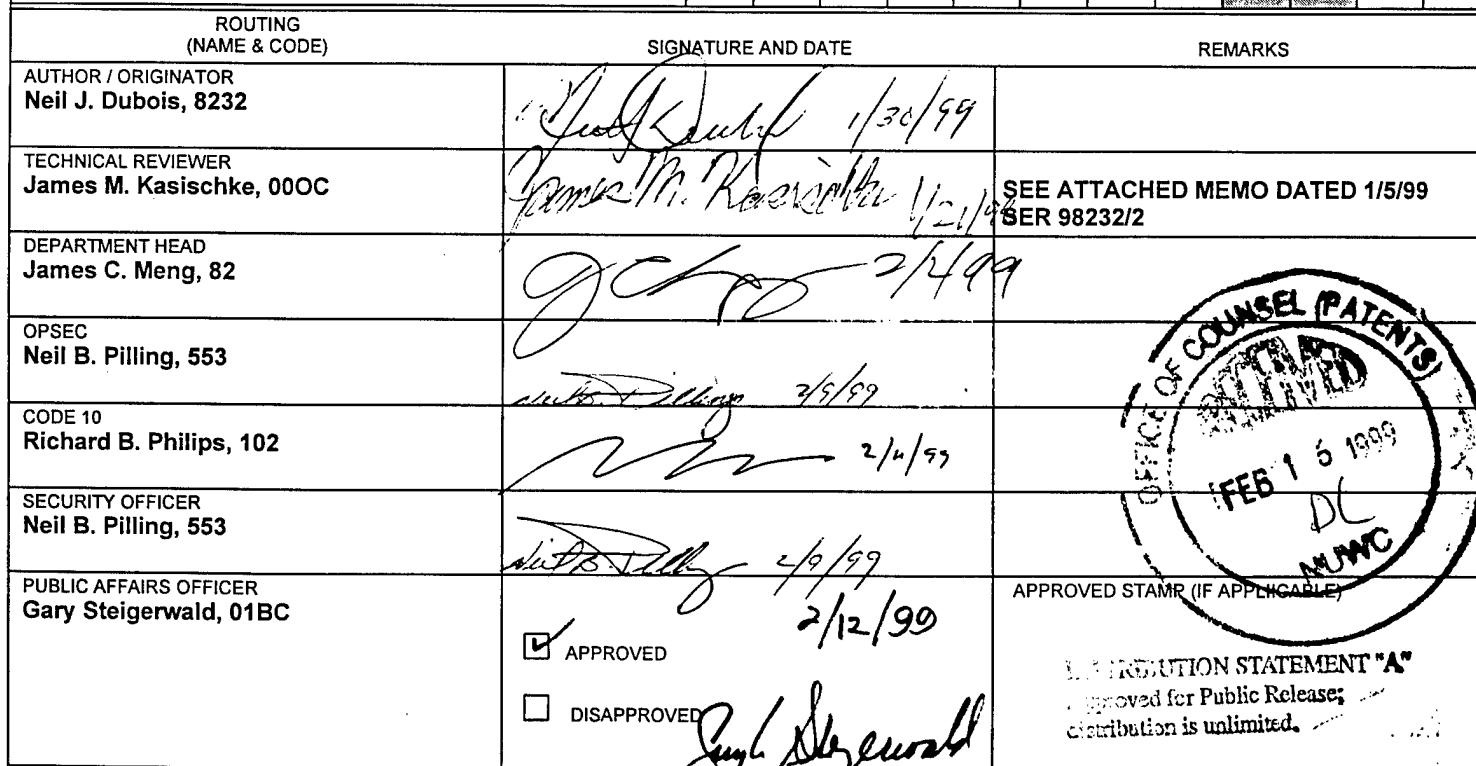 ROUTING
(NAME & CODE)
SIGNATURE AND DATE
REMARKS
AUTHOR / ORIGINATOR
Neil J. Dubois, 8232
1/30/99
TECHNICAL REVIEWER
James M. Kasischke, 00OC
James M. Kasischke 1/21/99
SEE ATTACHED MEMO DATED 1/5/99
SER 98232/2
DEPARTMENT HEAD
James C. Meng, 82
2/4/99
OPSEC
Neil B. Pilling, 553
Neil B. Pilling 2/9/99
CODE 10
Richard B. Philips, 102
2/11/99
SECURITY OFFICER
Neil B. Pilling, 553
Neil B. Pilling 2/9/99
PUBLIC AFFAIRS OFFICER
Gary Steigerwald, 01BC
2/12/99
APPROVED
DISAPPROVED
Steigerwald
OFFICE OF COUNSEL (PATENTS)
FEB 15 1999
DL
NUWC
APPROVED STAMP (IF APPLICABLE)
STATEMENT "A"
for Public Release;
distribution is unlimited.